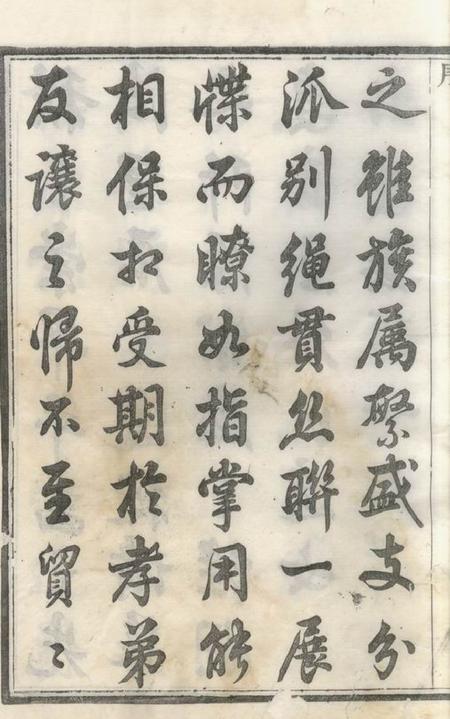 之雖族属繁盛支分
派別繩貫丝聯一展
牒而瞭如指掌用能
相保相受期於孝弟
友讓之歸不至貿〻